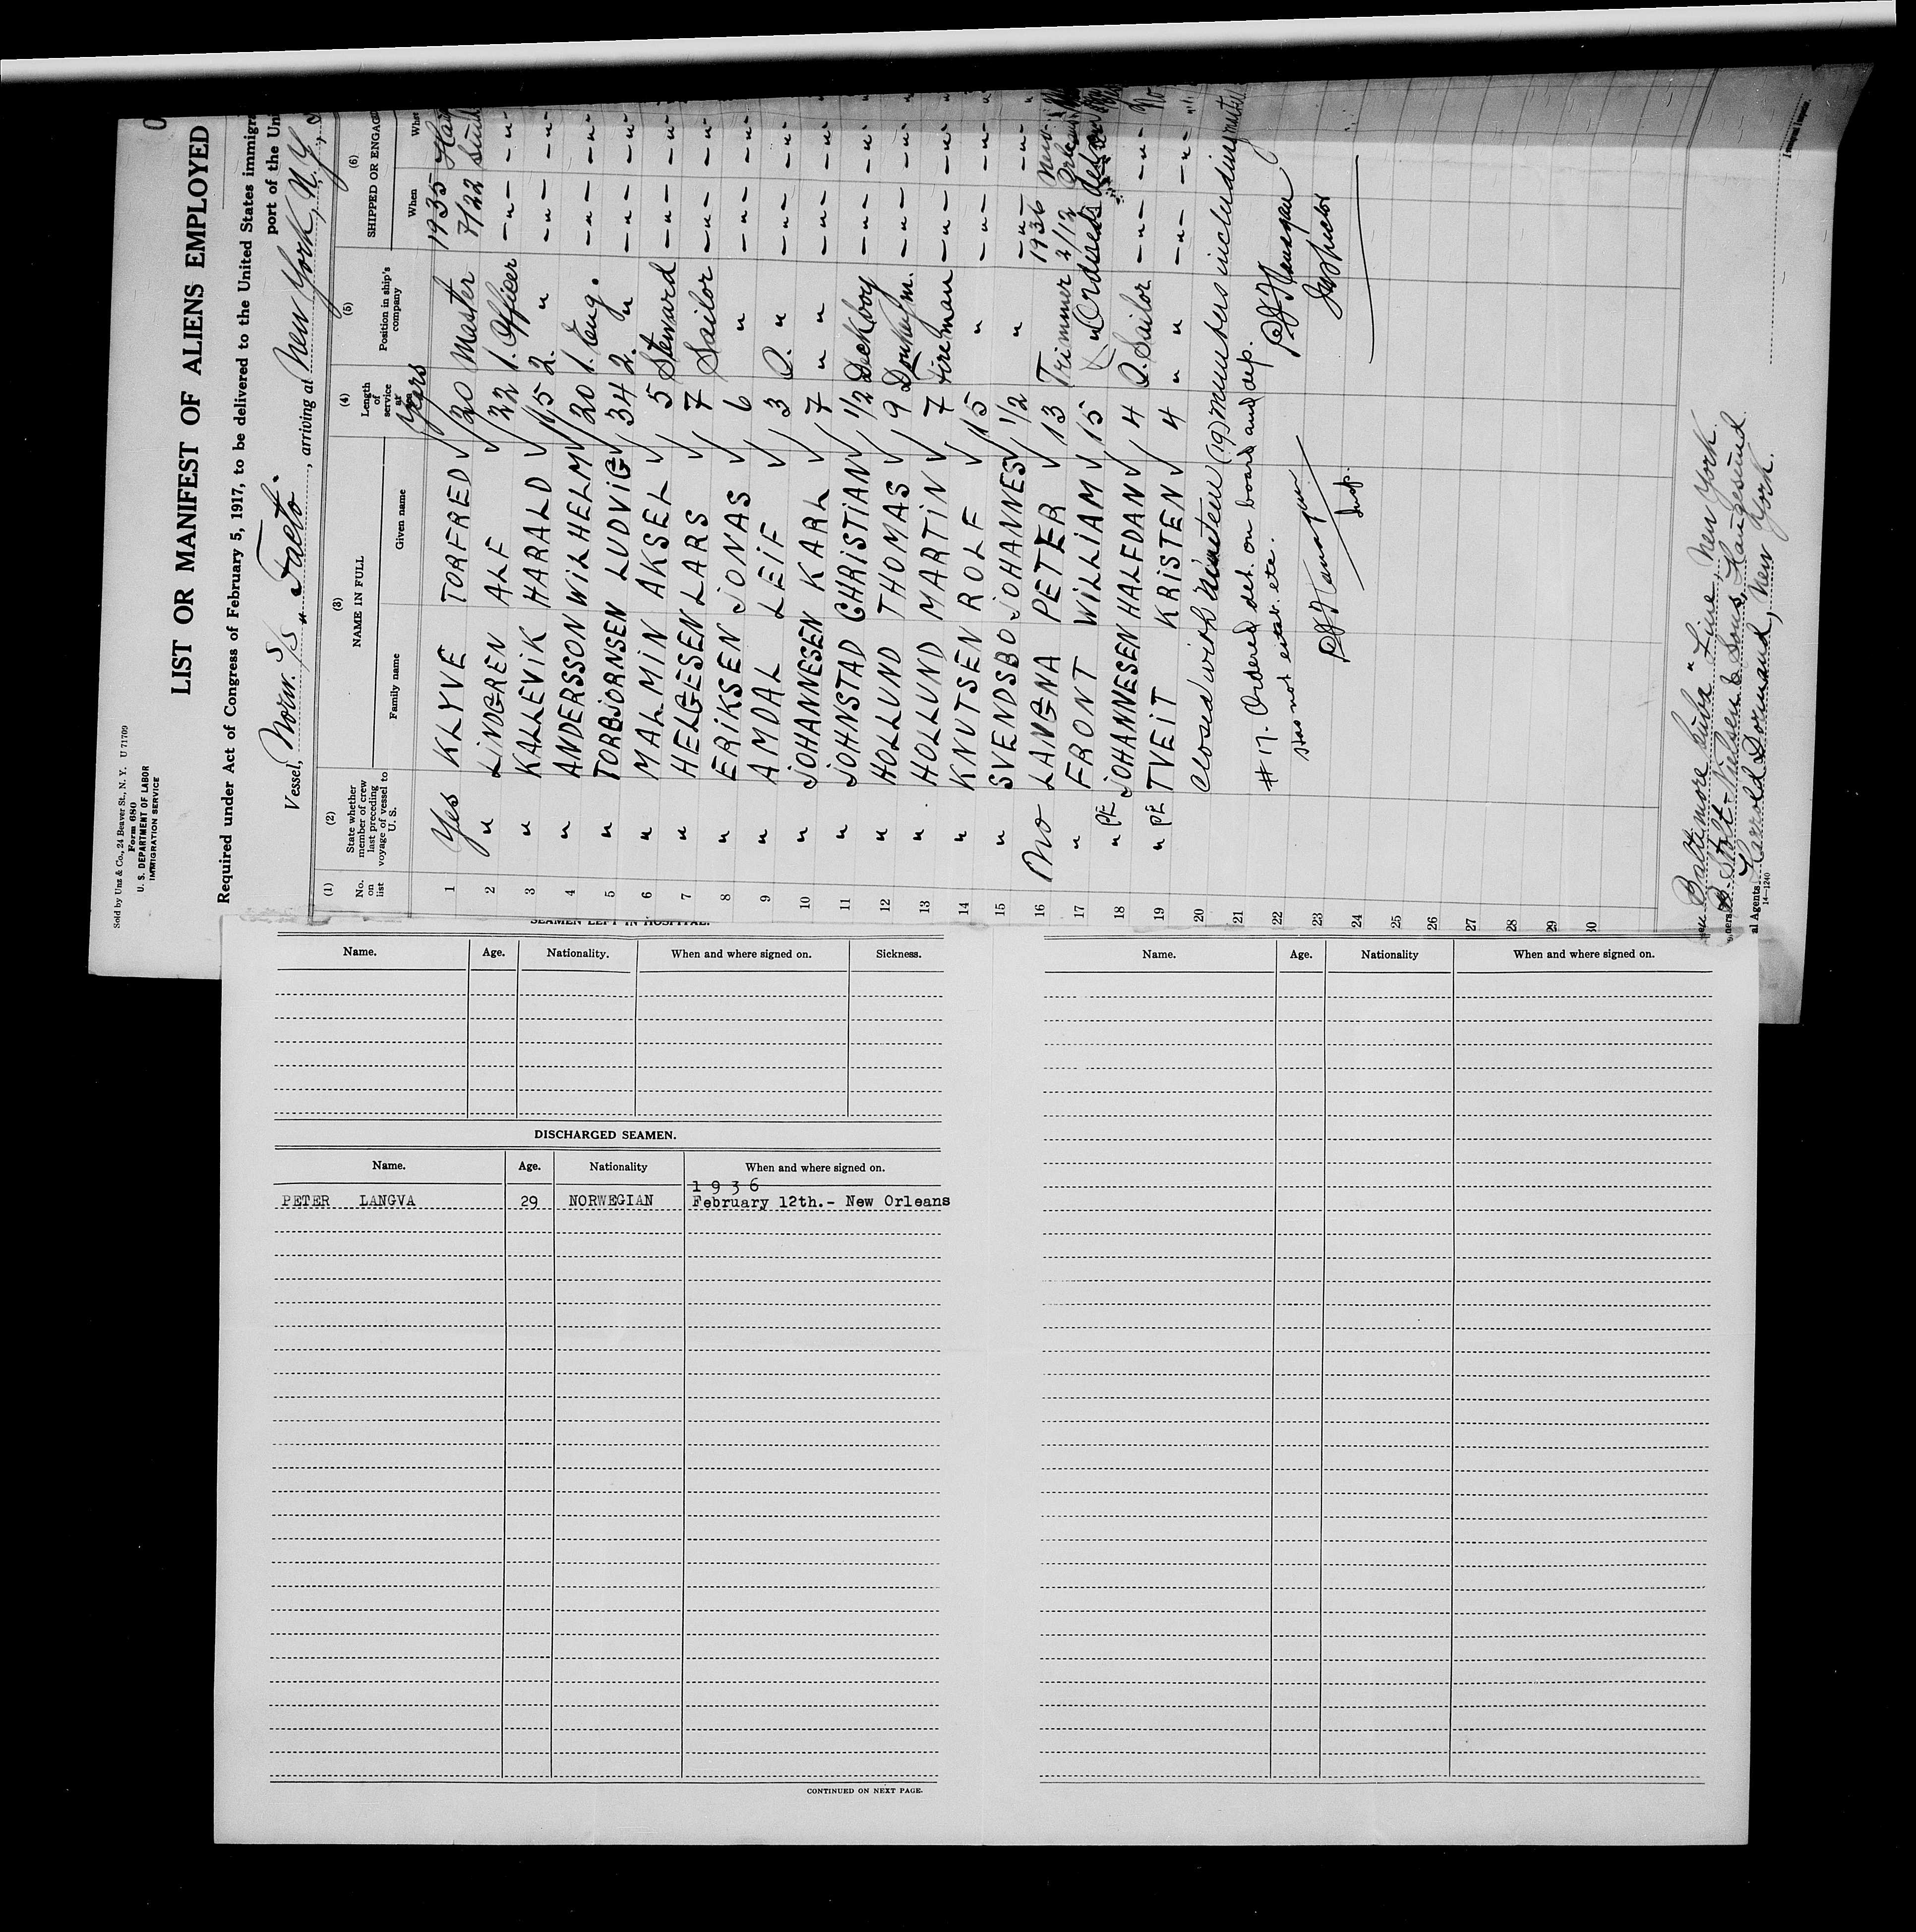 Sold by Unz & Co., 24 Beaver St., N. Y. U 71709
Form 680
U. S. DEPARTMENT OF LABOR
IMMIGRATION SERVICE
LIST OR MANIFEST OF ALIENS EMPLOYED
Required under Act of Congress of February 5, 1917, to be delivered to the United States immigra
port of the Uni
Vessel, Norw. S/S , arriving at New York, N.Y.
(1) (2) (3) (4) (5) (6)
No. on list State whether member of crew last preceding voyage of vessel to U. S. NAME IN FULL Length of service at Position in ship's company SHIPPED OR ENGAGE
Family name Given name Years When Whe
1 Yes KLYVE TORFRED √ 20 Master 1935 7/22
2 " LINDGREN ALF √ 22 1. Officer — " —
3 " KALLEVIK HARALD √ 15 2. " — " —
4 " ANDERSSON WILHELM √ 20 1. Eng. — " —
5 " TORBJORNSEN LUDVIG √ 34 2. " — " —
6 " MALMIN AKSEL √ 5 Steward — " —
7 " HELGESEN LARS √ 7 Sailor — " —
8 " ERIKSEN JONAS √ 6 " — " —
9 " AMDAL LEIF √ 3 O. " — " —
10 " JOHANNESEN KARL √ 7 " " — " —
11 " JOHNSTAD CHRISTIAN √ 1/2 Deckboy — " —
12 " HOLLUND THOMAS √ 9 Donkeym. — " —
13 " HOLLUND MARTIN √ 7 Fireman — " —
14 " KNUTSEN ROLF √ 15 " — " —
15 " SVENDSBO JOHANNES √ 1/2 " — " —
16 No LANGNA PETER √ 13 Trimmer 1936 2/12 New Orleans
17 " FRONT WILLIAM √ 15 "
18 " PE JOHANNESEN HALFDAN √ 4 O. Sailor — " —
19 " PE TVEIT KRISTEN √ 4 " — " —
20 Closed with nineteen (19) members including master
21
22 # 17. Ordered det. on board and dep.
Has not estab. etc.
23 Inspector
Insp.
24
25
26
27
28
29
30
Baltimore Cuba" Line, New York.
B. Stolt-Nielsen & Sons, Haugesund
al Agents Harrold Dormand, New York.
14—1240
SEAMEN LEFT IN HOSPITAL.
Name. Age. Nationality. When and where signed on. Sickness.
DISCHARGED SEAMEN.
Name. Age. Nationality When and where signed on.
1936
PETER LANGVA 29 NORWEGIAN February 12th.- New Orleans
CONTINUED ON NEXT PAGE.
Name. Age. Nationality When and where signed on.